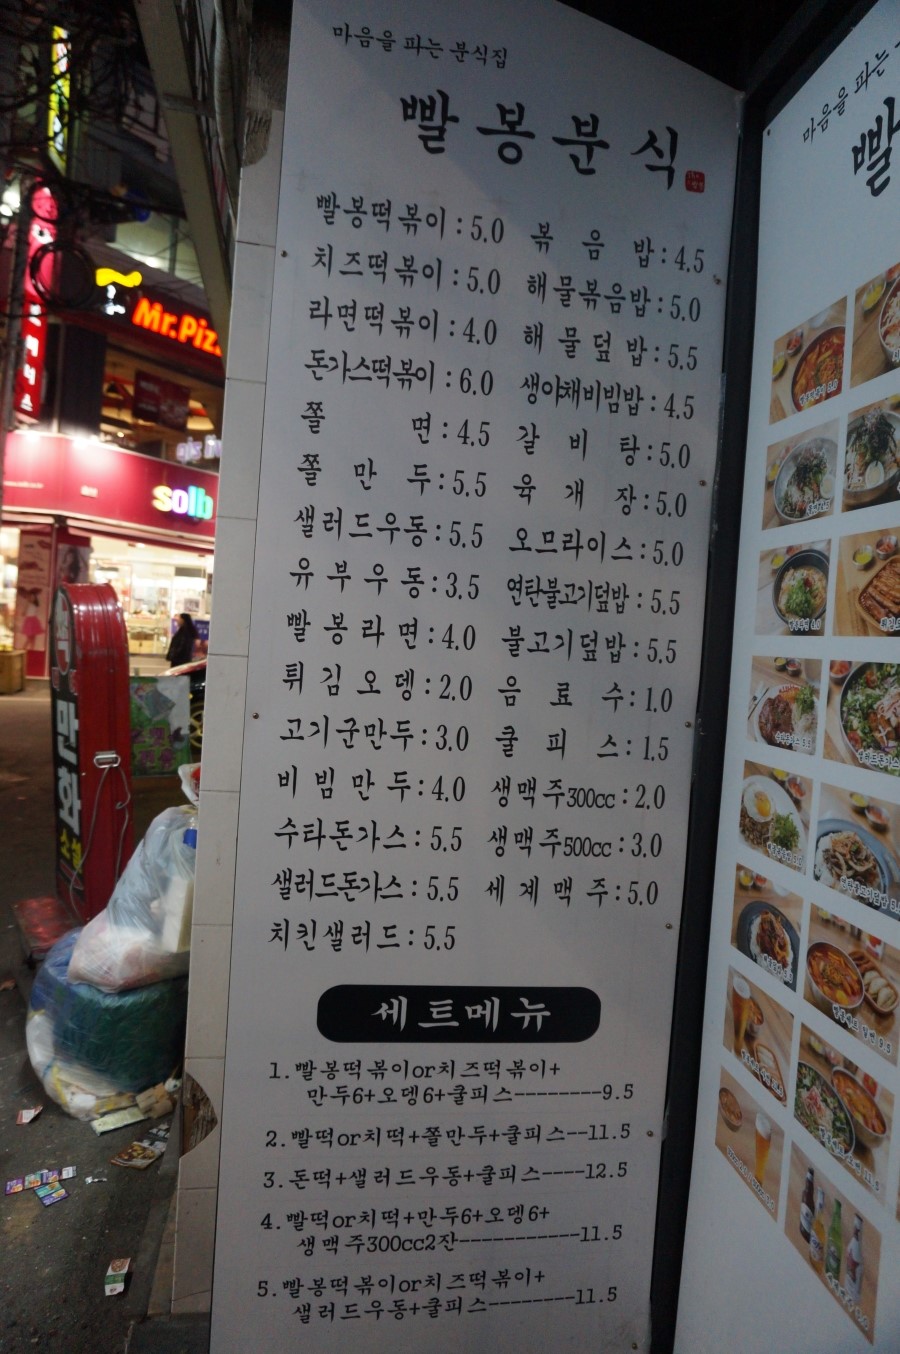 마음을 파는 분식집
빨봉분식
빨봉떡볶이:5.0
치즈떡볶이:5.0
라면떡볶이:4.0
돈가스떡볶이:6.0
쫄 면:4.5
쫄 만 두:5.5
샐러드우동:5.5
유부우동:3.5
빨봉라면:4.0
튀김오뎅:2.0
고기군만두:3.0
비빔만두:4.0
수타돈가스:5.5
샐러드돈가스:5.5
치킨샐러드:5.5
볶 음 밥:4.5
해물볶음밥:5.0
해물덮밥:5.5
생야채비빔밥:4.5
갈 비 탕:5.0
육 개 장:5.0
오므라이스:5.0
연탄불고기덮밥:5.5
불고기덮밥:5.5
음 료 수:1.0
쿨 피 스:1.5
생맥주300cc:2.0
생맥주500cc:3.0
세계맥주:5.0
세트메뉴
1.빨봉떡볶이or치즈떡볶이+
만두6+오뎅6+쿨피스--------9.5
2.빨떡or치떡+쫄만두+쿨피스--11.5
3.돈떡+샐러드우동+쿨피스----12.5
4.빨떡or치떡+만두6+오뎅6+
생맥주300cc2잔-----------11.5
5.빨봉떡볶이or치즈떡볶이+
샐러드우동+쿨피스--------11.5
마음을 파는
빨
Mr.Piz
solb
만화
소설